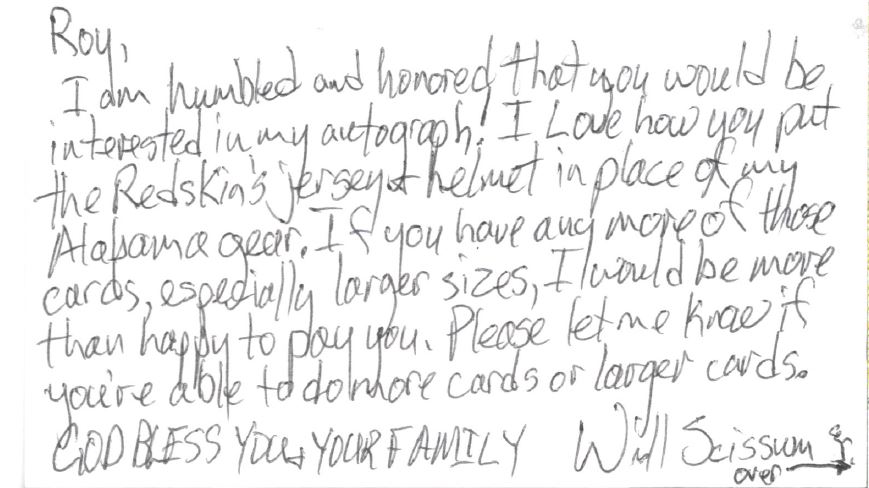 Roy,
I am humbled and honored that you would be
interested in my autograph! I Love how you put
the Redskin's jersey & helmet in place of my
Alabama gear. If you have any more of those
cards, especially larger sizes, I would be more
than happy to pay you. Please let me know if
you're able to do more cards or larger cards.
GOD BLESS YOU & YOUR FAMILY Will Scissum Jr.
over →